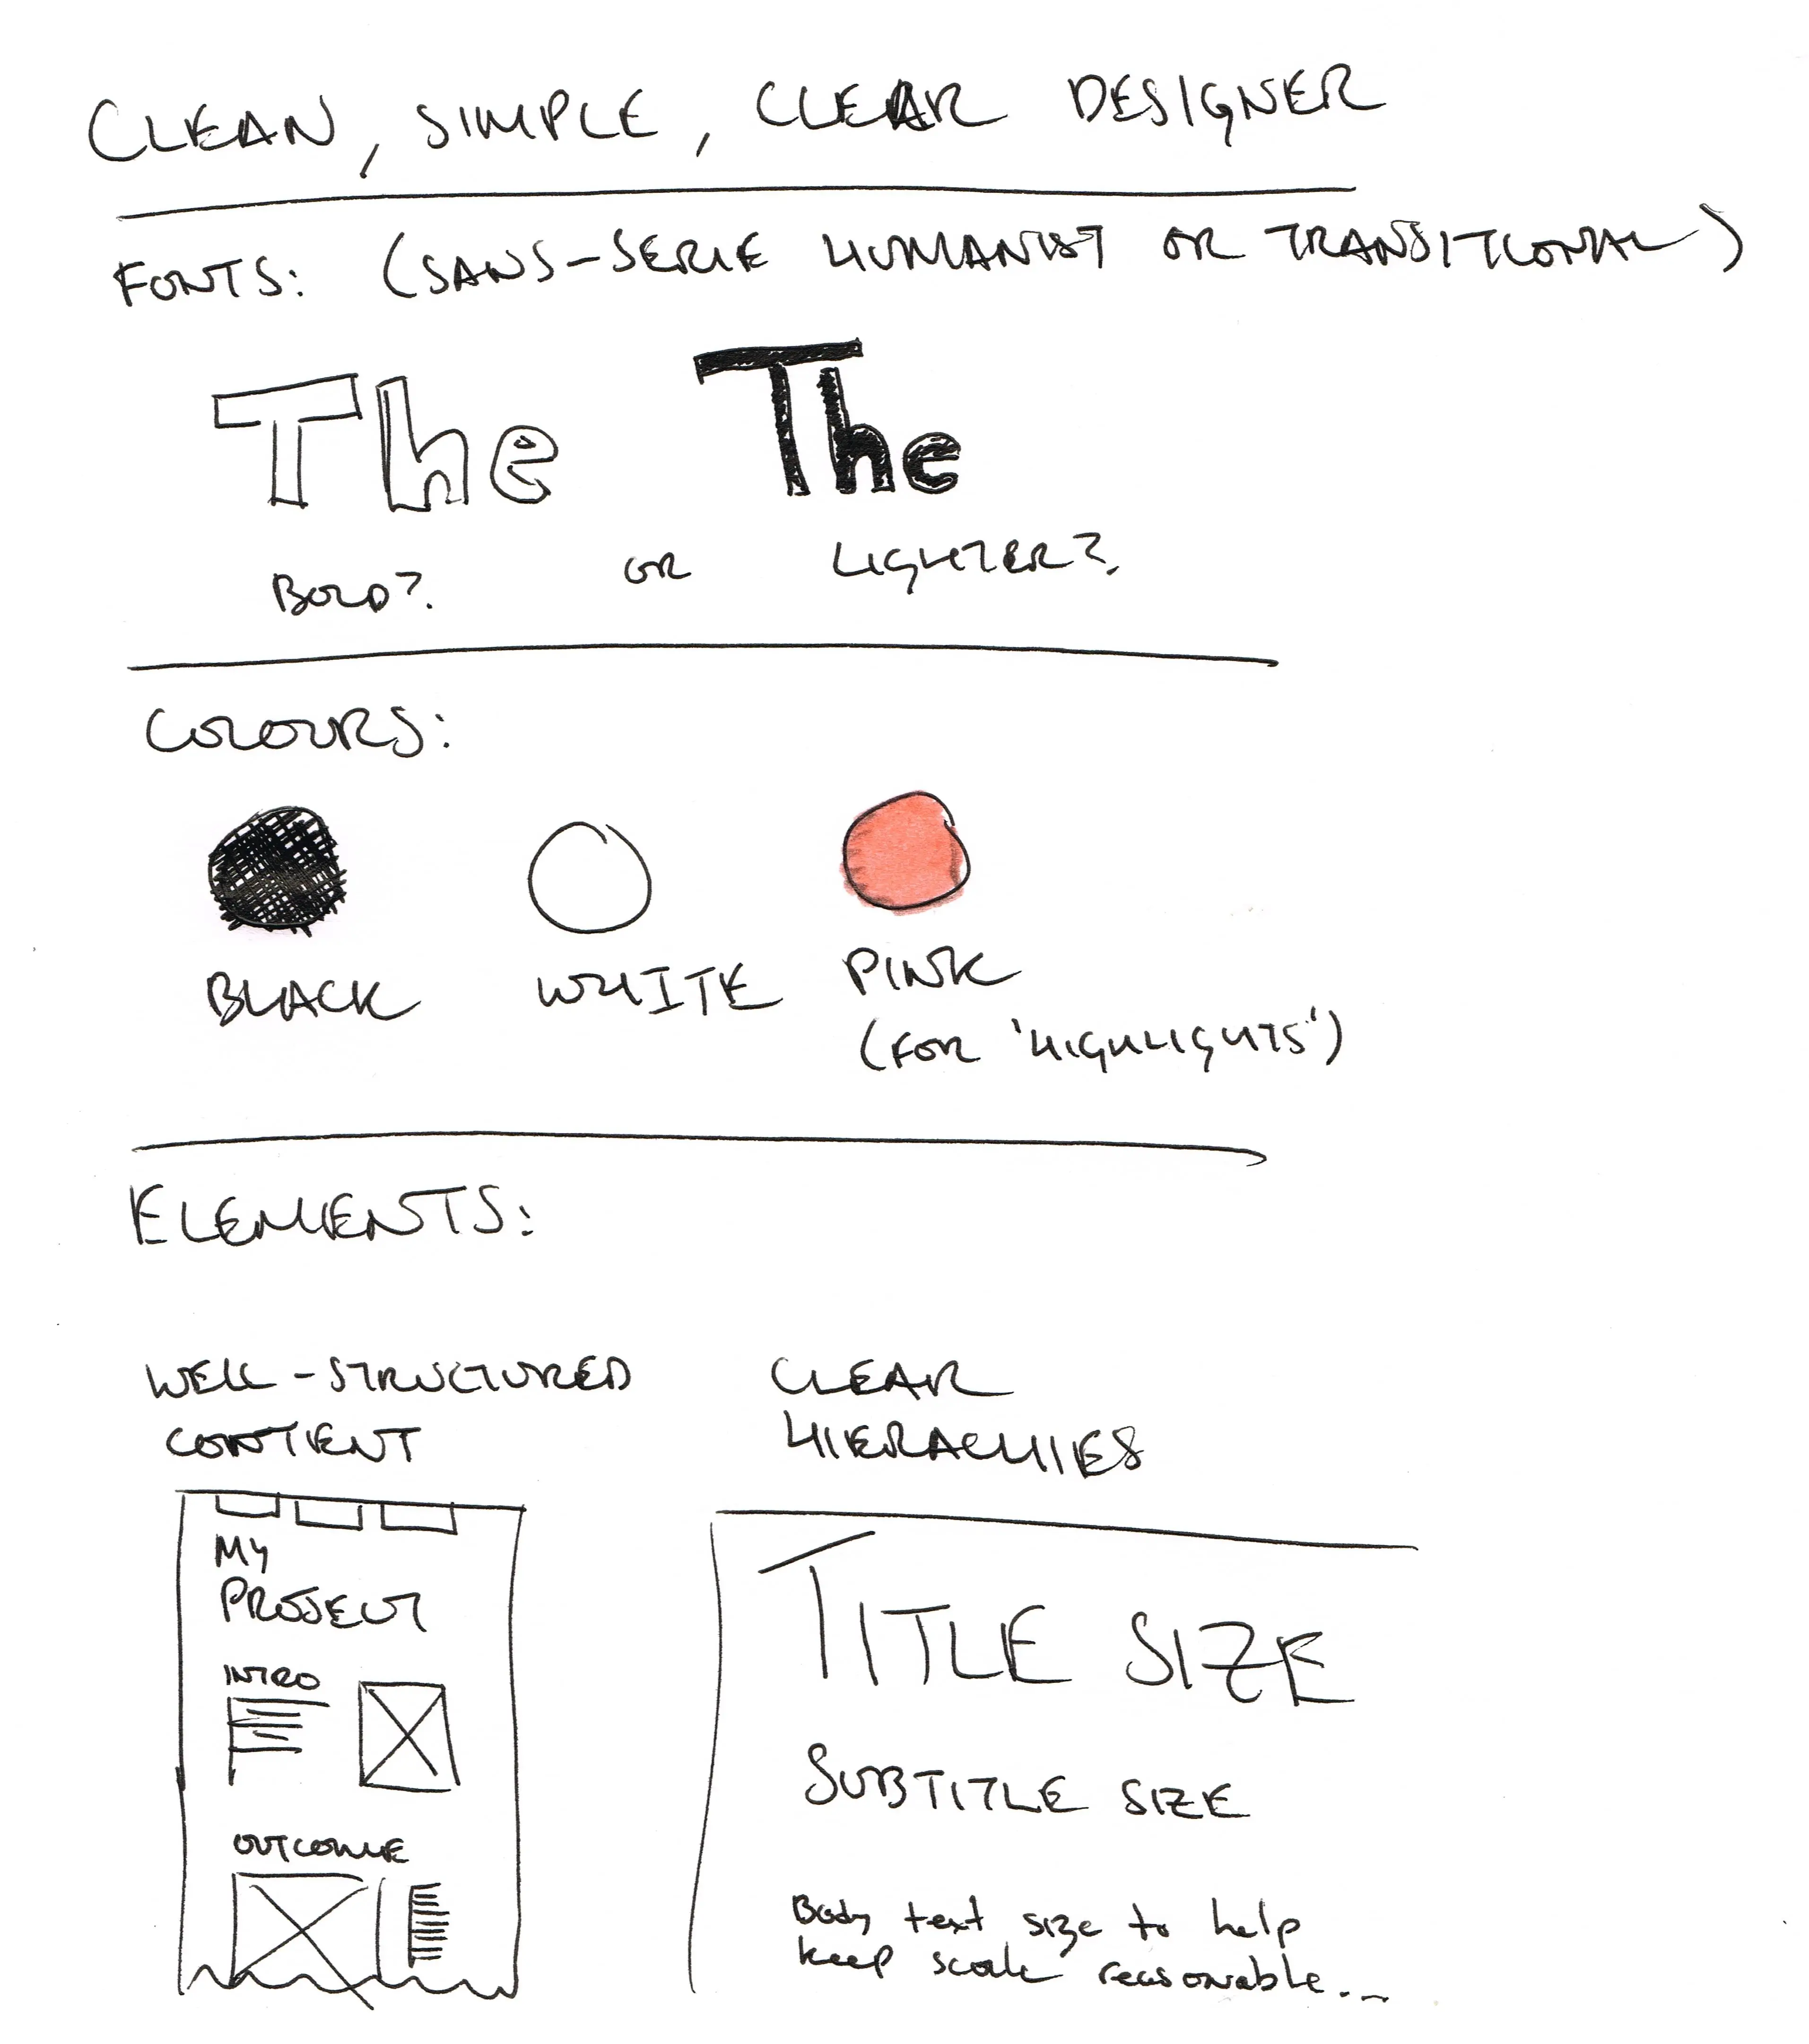 CLEAN, SIMPLE, CLEAR DESIGNER
FONTS: (SANS-SERIF HUMANIST OR TRANSITIONAL)
The The
BOLD? OR LIGHTER?
COLOURS:
BLACK WHITE PINK
(FOR 'HIGHLIGHTS')
ELEMENTS:
WELL-STRUCTURED
CONTENT
MY
PROJECT
INTRO
OUTCOME
CLEAR
HIERACHIES
TITLE SIZE
SUBTITLE SIZE
Body text size to help
keep scale reasonable...